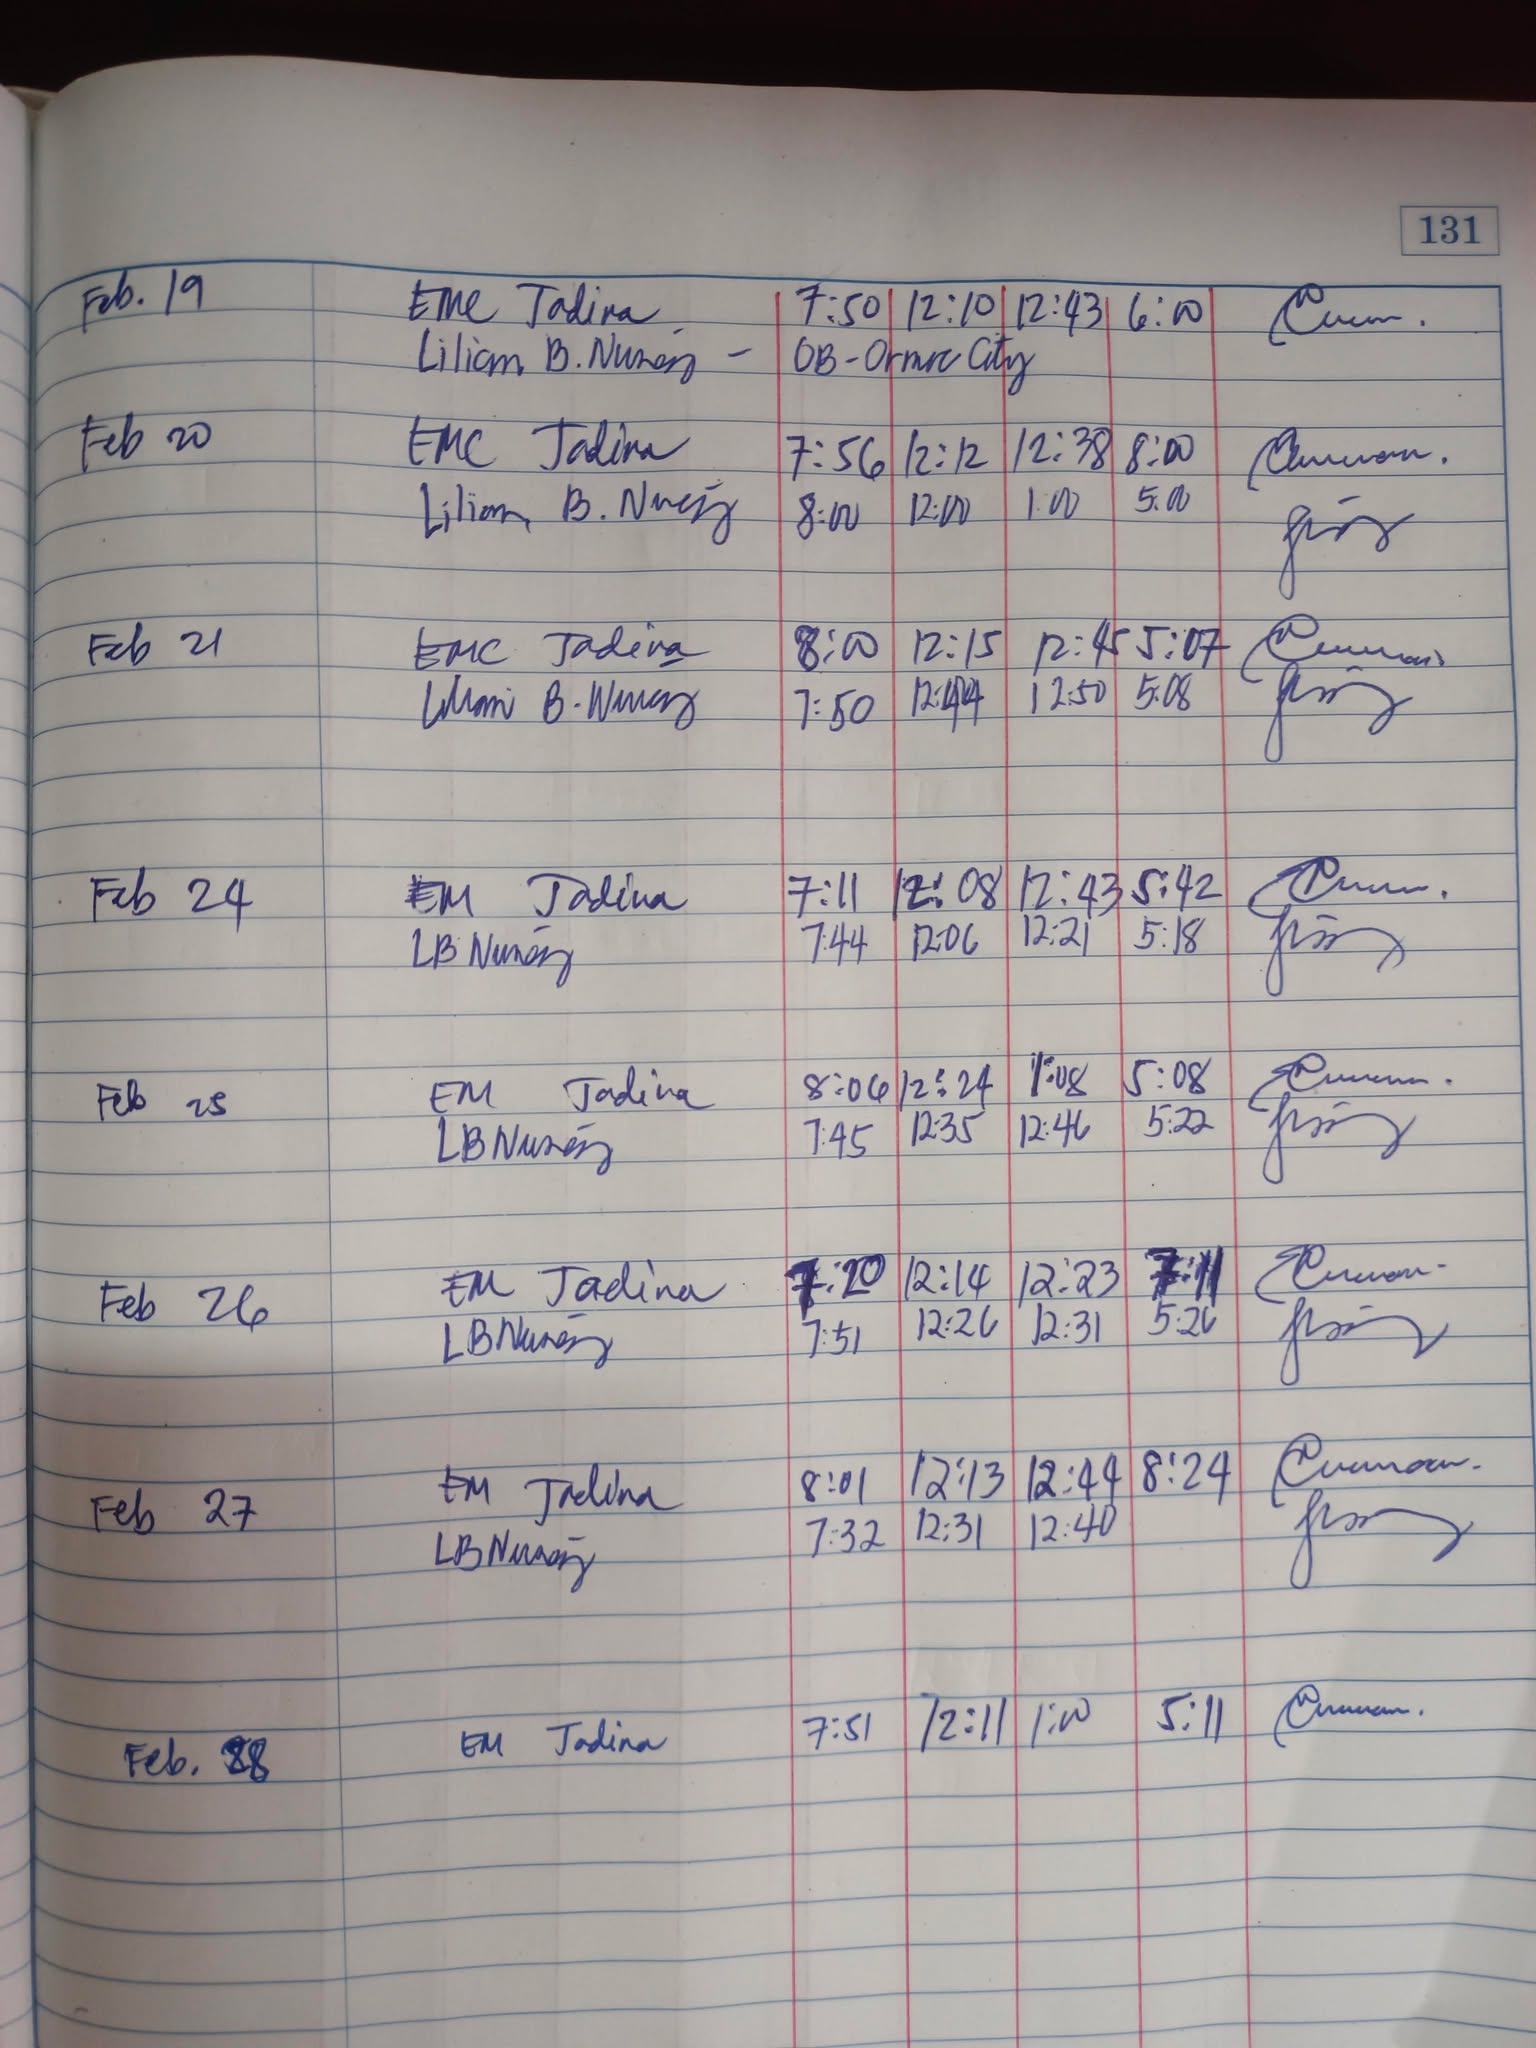 131
Feb. 19 EMC Jadina 7:50 12:10 12:43 6:00
Lilian B. Nuñez - OB - Ormoc City
Feb 20 EMC Jadina 7:56 12:12 12:38 8:00
Lilian B. Nuñez 8:00 12:00 1:00 5:00
Feb 21 EMC Jadina 8:00 12:15 12:45 5:07
Lilian B. Nuñez 7:50 12:44 12:50 5:08
Feb 24 EM Jadina 7:11 12:08 12:43 5:42
LB Nuñez 7:44 12:06 12:21 5:18
Feb 25 EM Jadina 8:06 12:24 1:08 5:08
LB Nuñez 7:45 12:35 12:46 5:22
Feb 26 EM Jadina 7:20 12:14 12:23 7:11
LB Nuñez 7:51 12:26 12:31 5:26
Feb 27 EM Jadina 8:01 12:13 12:44 8:24
LB Nuñez 7:32 12:31 12:40
Feb. 28 EM Jadina 7:51 12:11 1:00 5:11